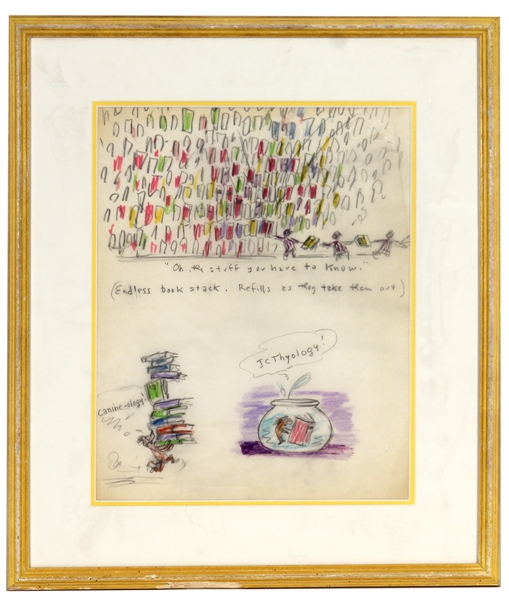 "Oh, the stuff you have to know."
(Endless book stack. Refills as they take them out)
Ic Thyology!
Canine-ology!